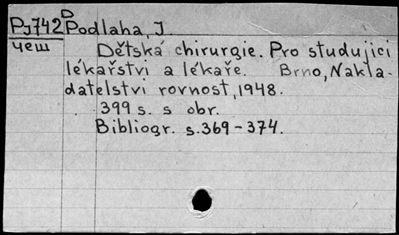 PJ742 D Podlaha, J.
чеш Dětská chirurgie. Pro studující
lékařství a lékaře. Brno, Nakla-
datelství rovnost, 1948.
399 s. s obr.
Bibliogr. s.369-374.